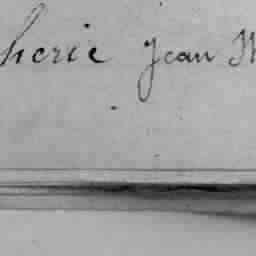 herie Jean